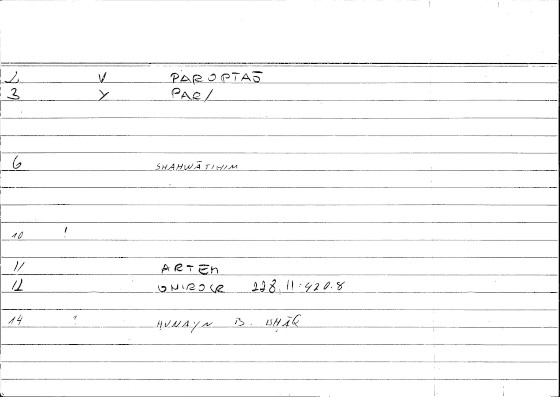 2 V PAROPTAŌ
3 Y PAR/
6 SHAHWĀTIHIM
10 !
11 ARTĒM
12 ONIROCR 228,11:420.8
14 ? HUNAYN B. ISHĀQ